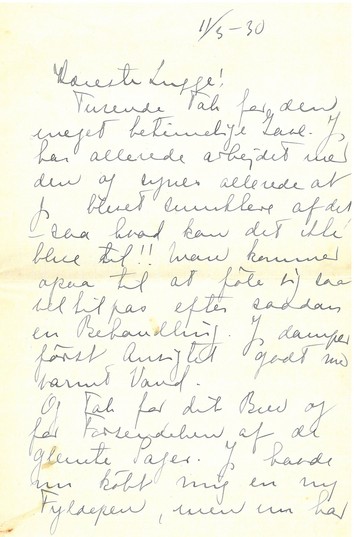 11/5-30
Kæreste Lugge!
Tusende Tak for den
meget betimelige Gave. Jeg
har allerede arbejdet med
den og synes allerede at
jeg blevet smukkere af det
- saa hvad kan det ikke
blive til!! Man kommer
ogsaa til at föle sig saa
vel tilpas efter saadan
en Behandling. Jeg damper
först Ansigtet godt med
varmt Vand.
Og Tak for dit Brev og
for Forsendelsen af de
glemte Sager. Jeg havde
nu köbt mig en ny
Fyldepen, men nu har